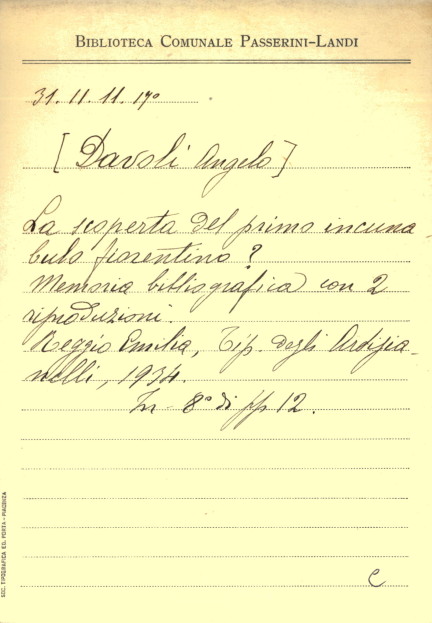 BIBLIOTECA COMUNALE PASSERINI-LANDI
31. 11. 11. 17º
[Davoli Angelo]
La scoperta del primo incuna
bulo fiorentino ?
Memoria bibliografica con 2
riproduzioni.
Reggio Emilia, Tip. degli Artigia-
nelli, 1934.
In - 8º di pp 12.
C
SOC. TIPOGRAFICA ED. PORTA - PIACENZA